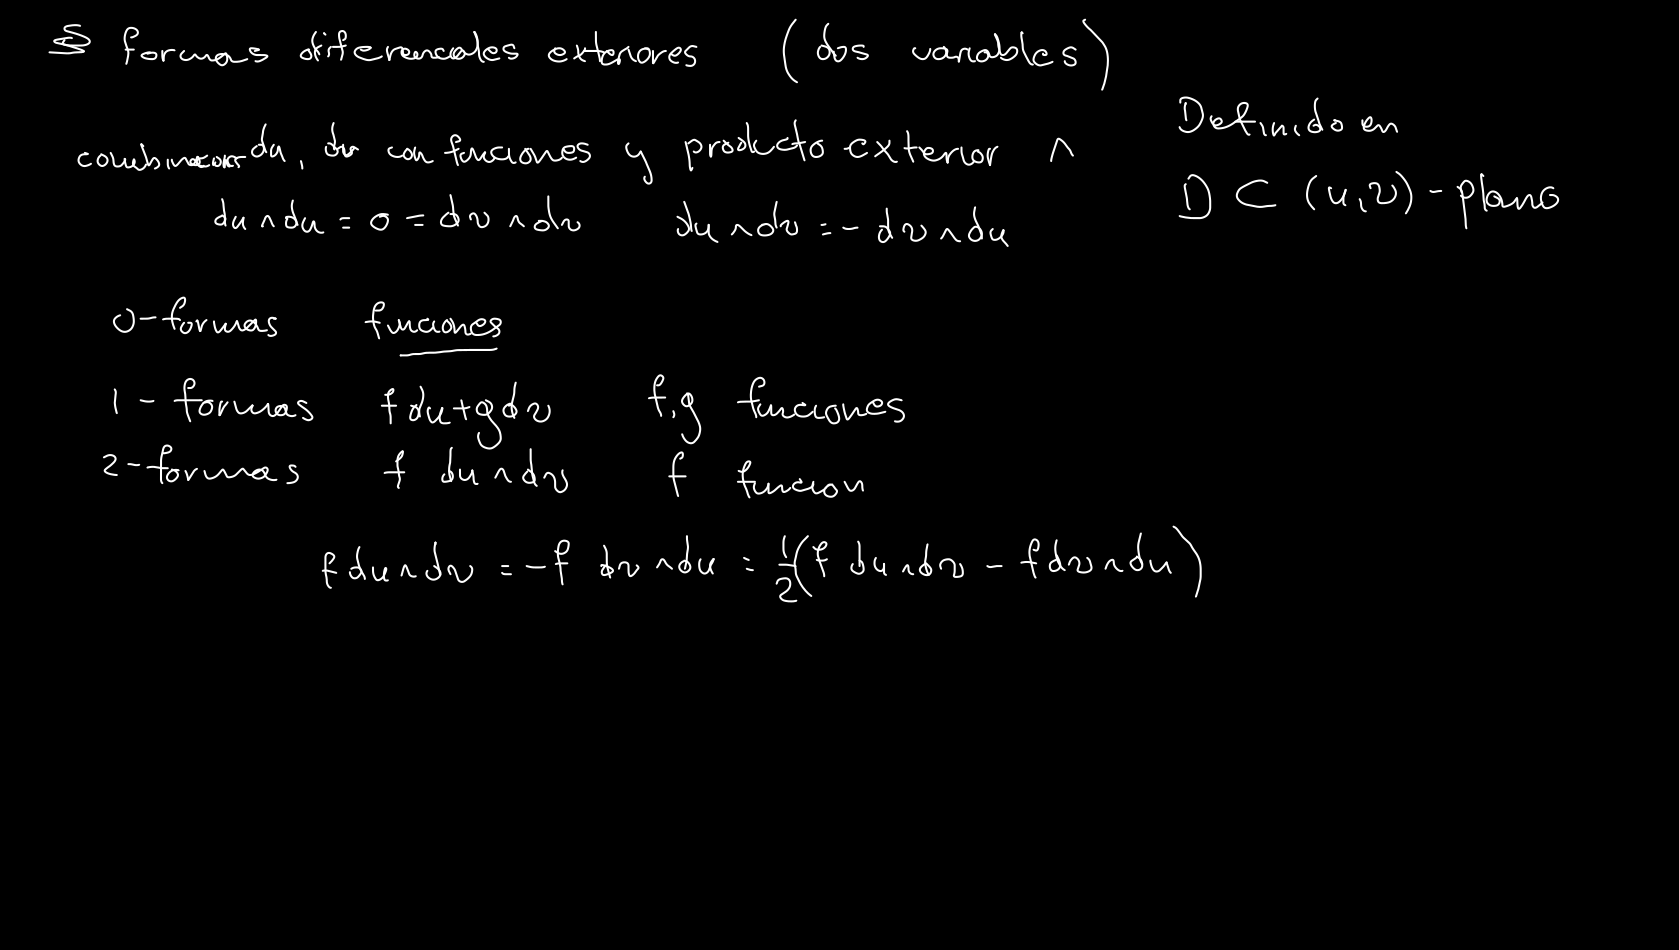 § formas diferenciales exteriores (dos variables)
combinacion du, dv con funciones y producto exterior ∧
Definido en
D ⊂ (u,v)-plano
du ∧ du = 0 = dv ∧ dv du ∧ dv = - dv ∧ du
0-formas funciones
1-formas f du + g dv f,g funciones
2-formas f du ∧ dv f funcion
f du ∧ dv = -f dv ∧ du = 1/2 (f du ∧ dv - f dv ∧ du)